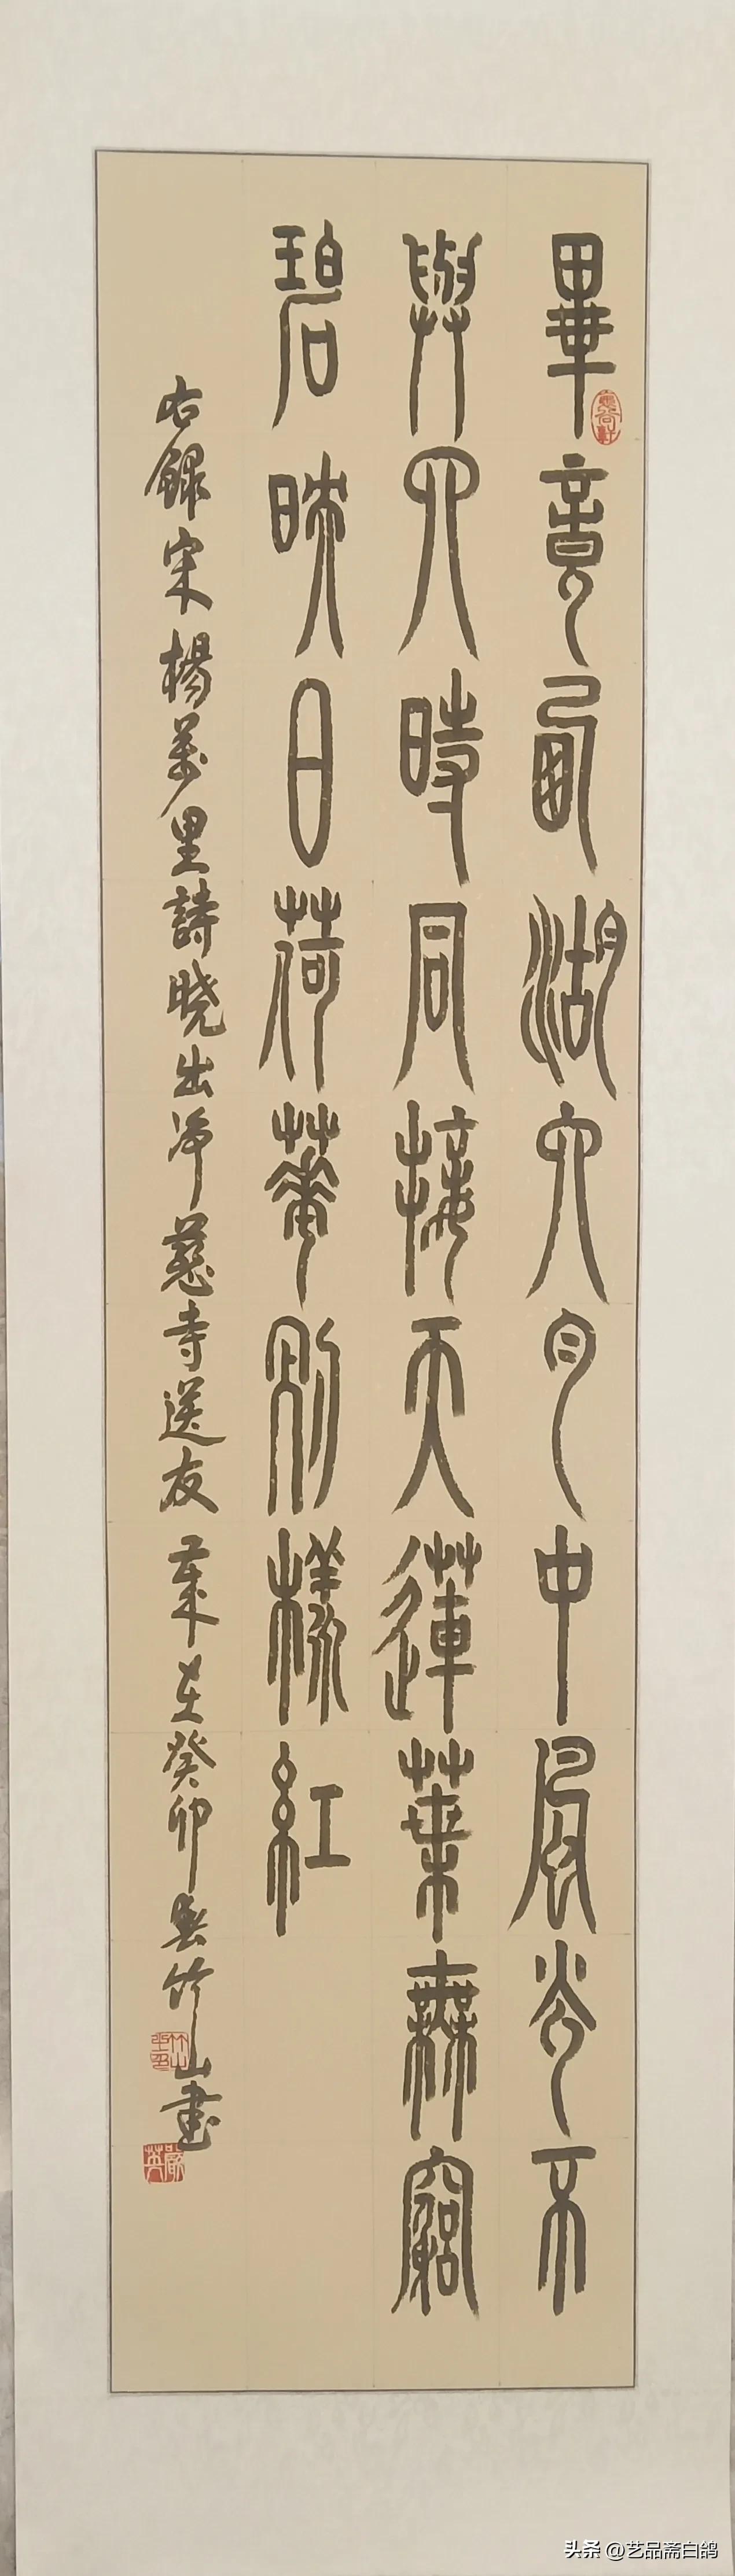 畢竟西湖六月中風光不
與四時同接天蓮葉無窮
碧映日荷華別樣紅
右録宋楊萬里詩晓出净慈寺送友 歲在癸卯春竹山書
头条 @艺品斋白鸽